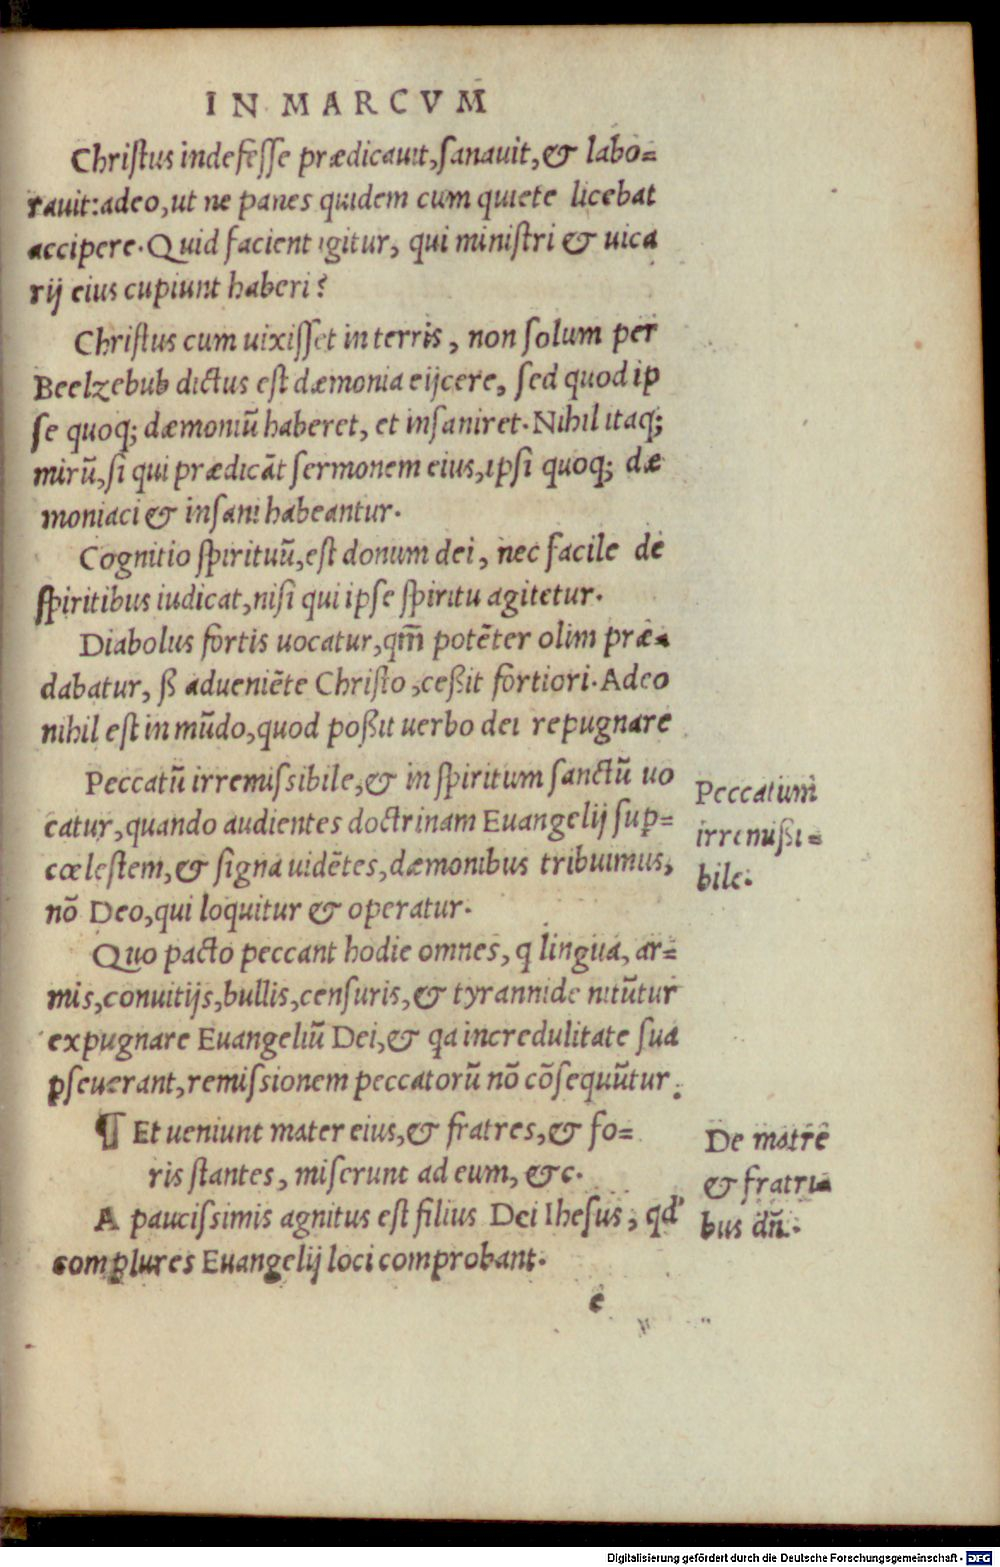 IN MARCVM
Chriſtus indefeſſe prædicauit, ſanauit, & labo-
rauit: adeo, ut ne panes quidem cum quiete licebat
accipere. Quid facient igitur, qui miniſtri & uica
rij eius cupiunt haberi?
Chriſtus cum uixiſſet in terris, non ſolum per
Beelzebub dictus eſt dæmonia eijcere, ſed quod ip
ſe quoq; dæmoniū haberet, et inſaniret. Nihil itaq;
mirū, ſi qui prædicāt ſermonem eius, ipſi quoq; dæ
moniaci & inſani habeantur.
Cognitio ſpirituū, eſt donum dei, nec facile de
ſpiritibus iudicat, niſi qui ipſe ſpiritu agitetur.
Diabolus fortis uocatur, qm̄ potēter olim præ-
dabatur, ß adueniēte Chriſto, ceßit fortiori. Adeo
nihil eſt in mūdo, quod poßit uerbo dei repugnare
Peccatū irremiſsibile, & in ſpiritum ſanctū uo
catur, quando audientes doctrinam Euangelij ſup-
cœleſtem, & ſigna uidētes, dæmonibus tribuimus,
nō Deo, qui loquitur & operatur.
Peccatum
irremißi-
bile.
Quo pacto peccant hodie omnes, q lingua, ar-
mis, conuitijs, bullis, cenſuris, & tyrannide nitūtur
expugnare Euangeliū Dei, & qa incredulitate ſua
pſeuerant, remiſsionem peccatorū nō cōſequūtur.
¶ Et ueniunt mater eius, & fratres, & fo-
ris ſtantes, miſerunt ad eum, &c.
De matre
& fratri-
bus dn̄.
A pauciſsimis agnitus eſt filius Dei Iheſus, qd'
complures Euangelij loci comprobant.
e
Digitalisierung gefördert durch die Deutsche Forschungsgemeinschaft - DFG